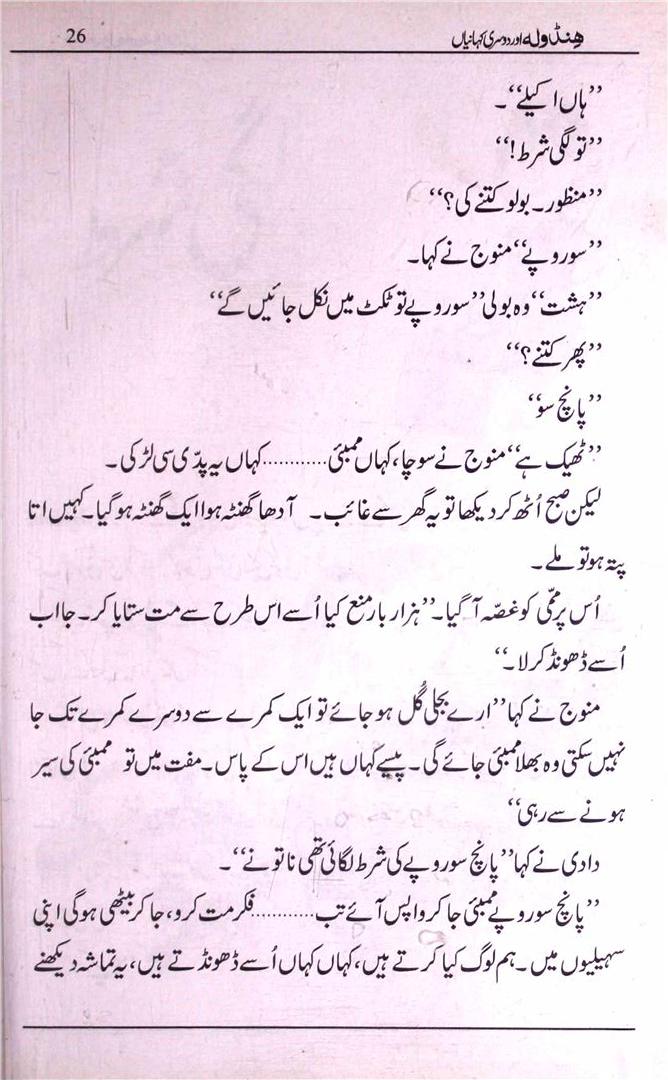 ھِنڈولہ اور دوسری کہانیاں 26
’’ہاں اکیلے‘‘۔
’’تو لگی شرط!‘‘
’’منظور۔ بولو کتنے کی؟‘‘
’’سو روپے‘‘ منوج نے کہا۔
’’ہشت‘‘ وہ بولی ’’سو روپے تو ٹکٹ میں نکل جائیں گے‘‘
’’پھر کتنے؟‘‘
’’پانچ سو‘‘
’’ٹھیک ہے‘‘ منوج نے سوچا، کہاں ممبئی............کہاں یہ پدّی سی لڑکی۔
لیکن صبح اُٹھ کر دیکھا تو یہ گھر سے غائب۔ آدھا گھنٹہ ہوا ایک گھنٹہ ہو گیا۔ کہیں اتا
پتہ ہو تو ملے۔
اُس پر ممّی کو غصّہ آ گیا۔ ’’ہزار بار منع کیا اُسے اس طرح سے مت ستایا کر۔ جا اب
اُسے ڈھونڈ کر لا۔‘‘
منوج نے کہا ’’ارے بجلی گُل ہو جائے تو ایک کمرے سے دوسرے کمرے تک جا
نہیں سکتی وہ بھلا ممبئی جائے گی۔ پیسے کہاں ہیں اس کے پاس۔ مفت میں تو ممبئی کی سیر
ہونے سے رہی‘‘
دادی نے کہا ’’پانچ سو روپے کی شرط لگائی تھی نا تو نے‘‘۔
’’پانچ سو روپے ممبئی جا کر واپس آئے تب............فکر مت کرو، جا کر بیٹھی ہوگی اپنی
سہیلیوں میں۔ ہم لوگ کیا کرتے ہیں، کہاں کہاں اُسے ڈھونڈتے ہیں، یہ تماشہ دیکھنے